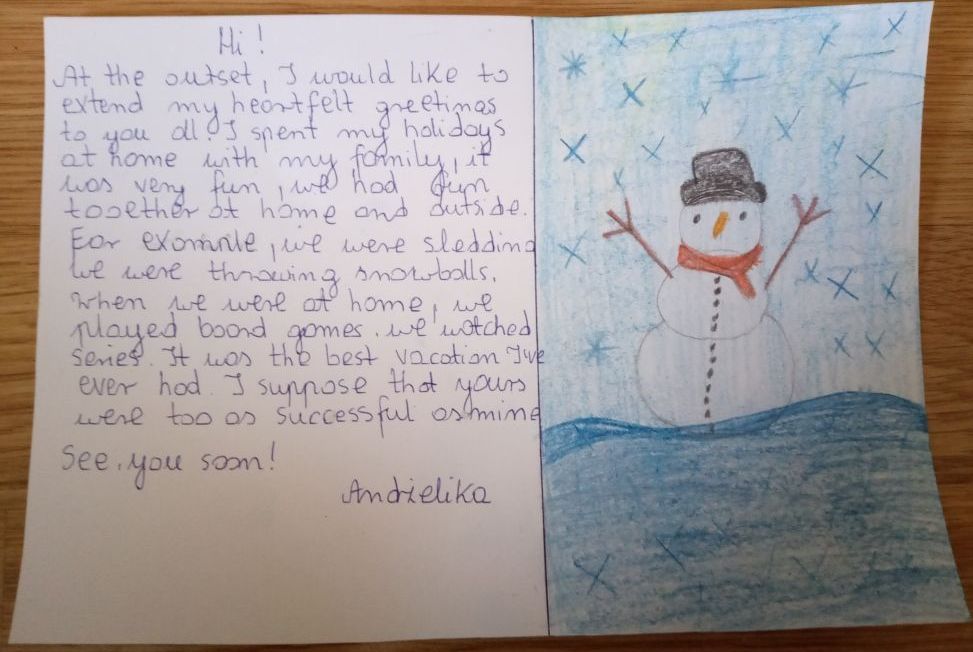 Hi!
At the outset, I would like to
extend my heartfelt greetings
to you all! I spent my holidays
at home with my family, it
was very fun, we had fun
together at home and outside.
For example, we were sledding
we were throwing snowballs.
When we were at home, we
played board games. we watched
series. It was the best vacation I've
ever had. I suppose that yours
were too as successful as mine
See you soon!
Andżelika